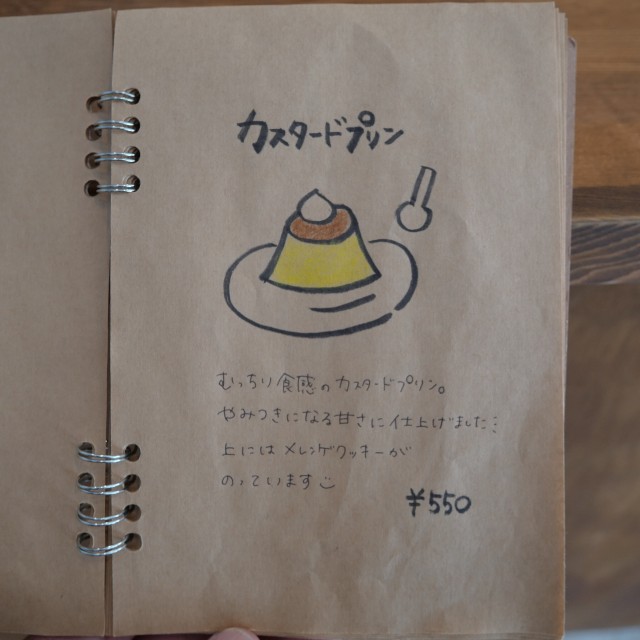 カスタードプリン
むっちり食感のカスタードプリン。
やみつきになる甘さに仕上げました…
上にはメレンゲクッキーが
のっています
¥550